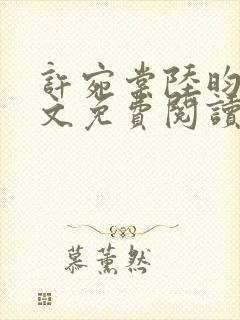 許宛棠陸昀
文免費閱讀
慕薰然